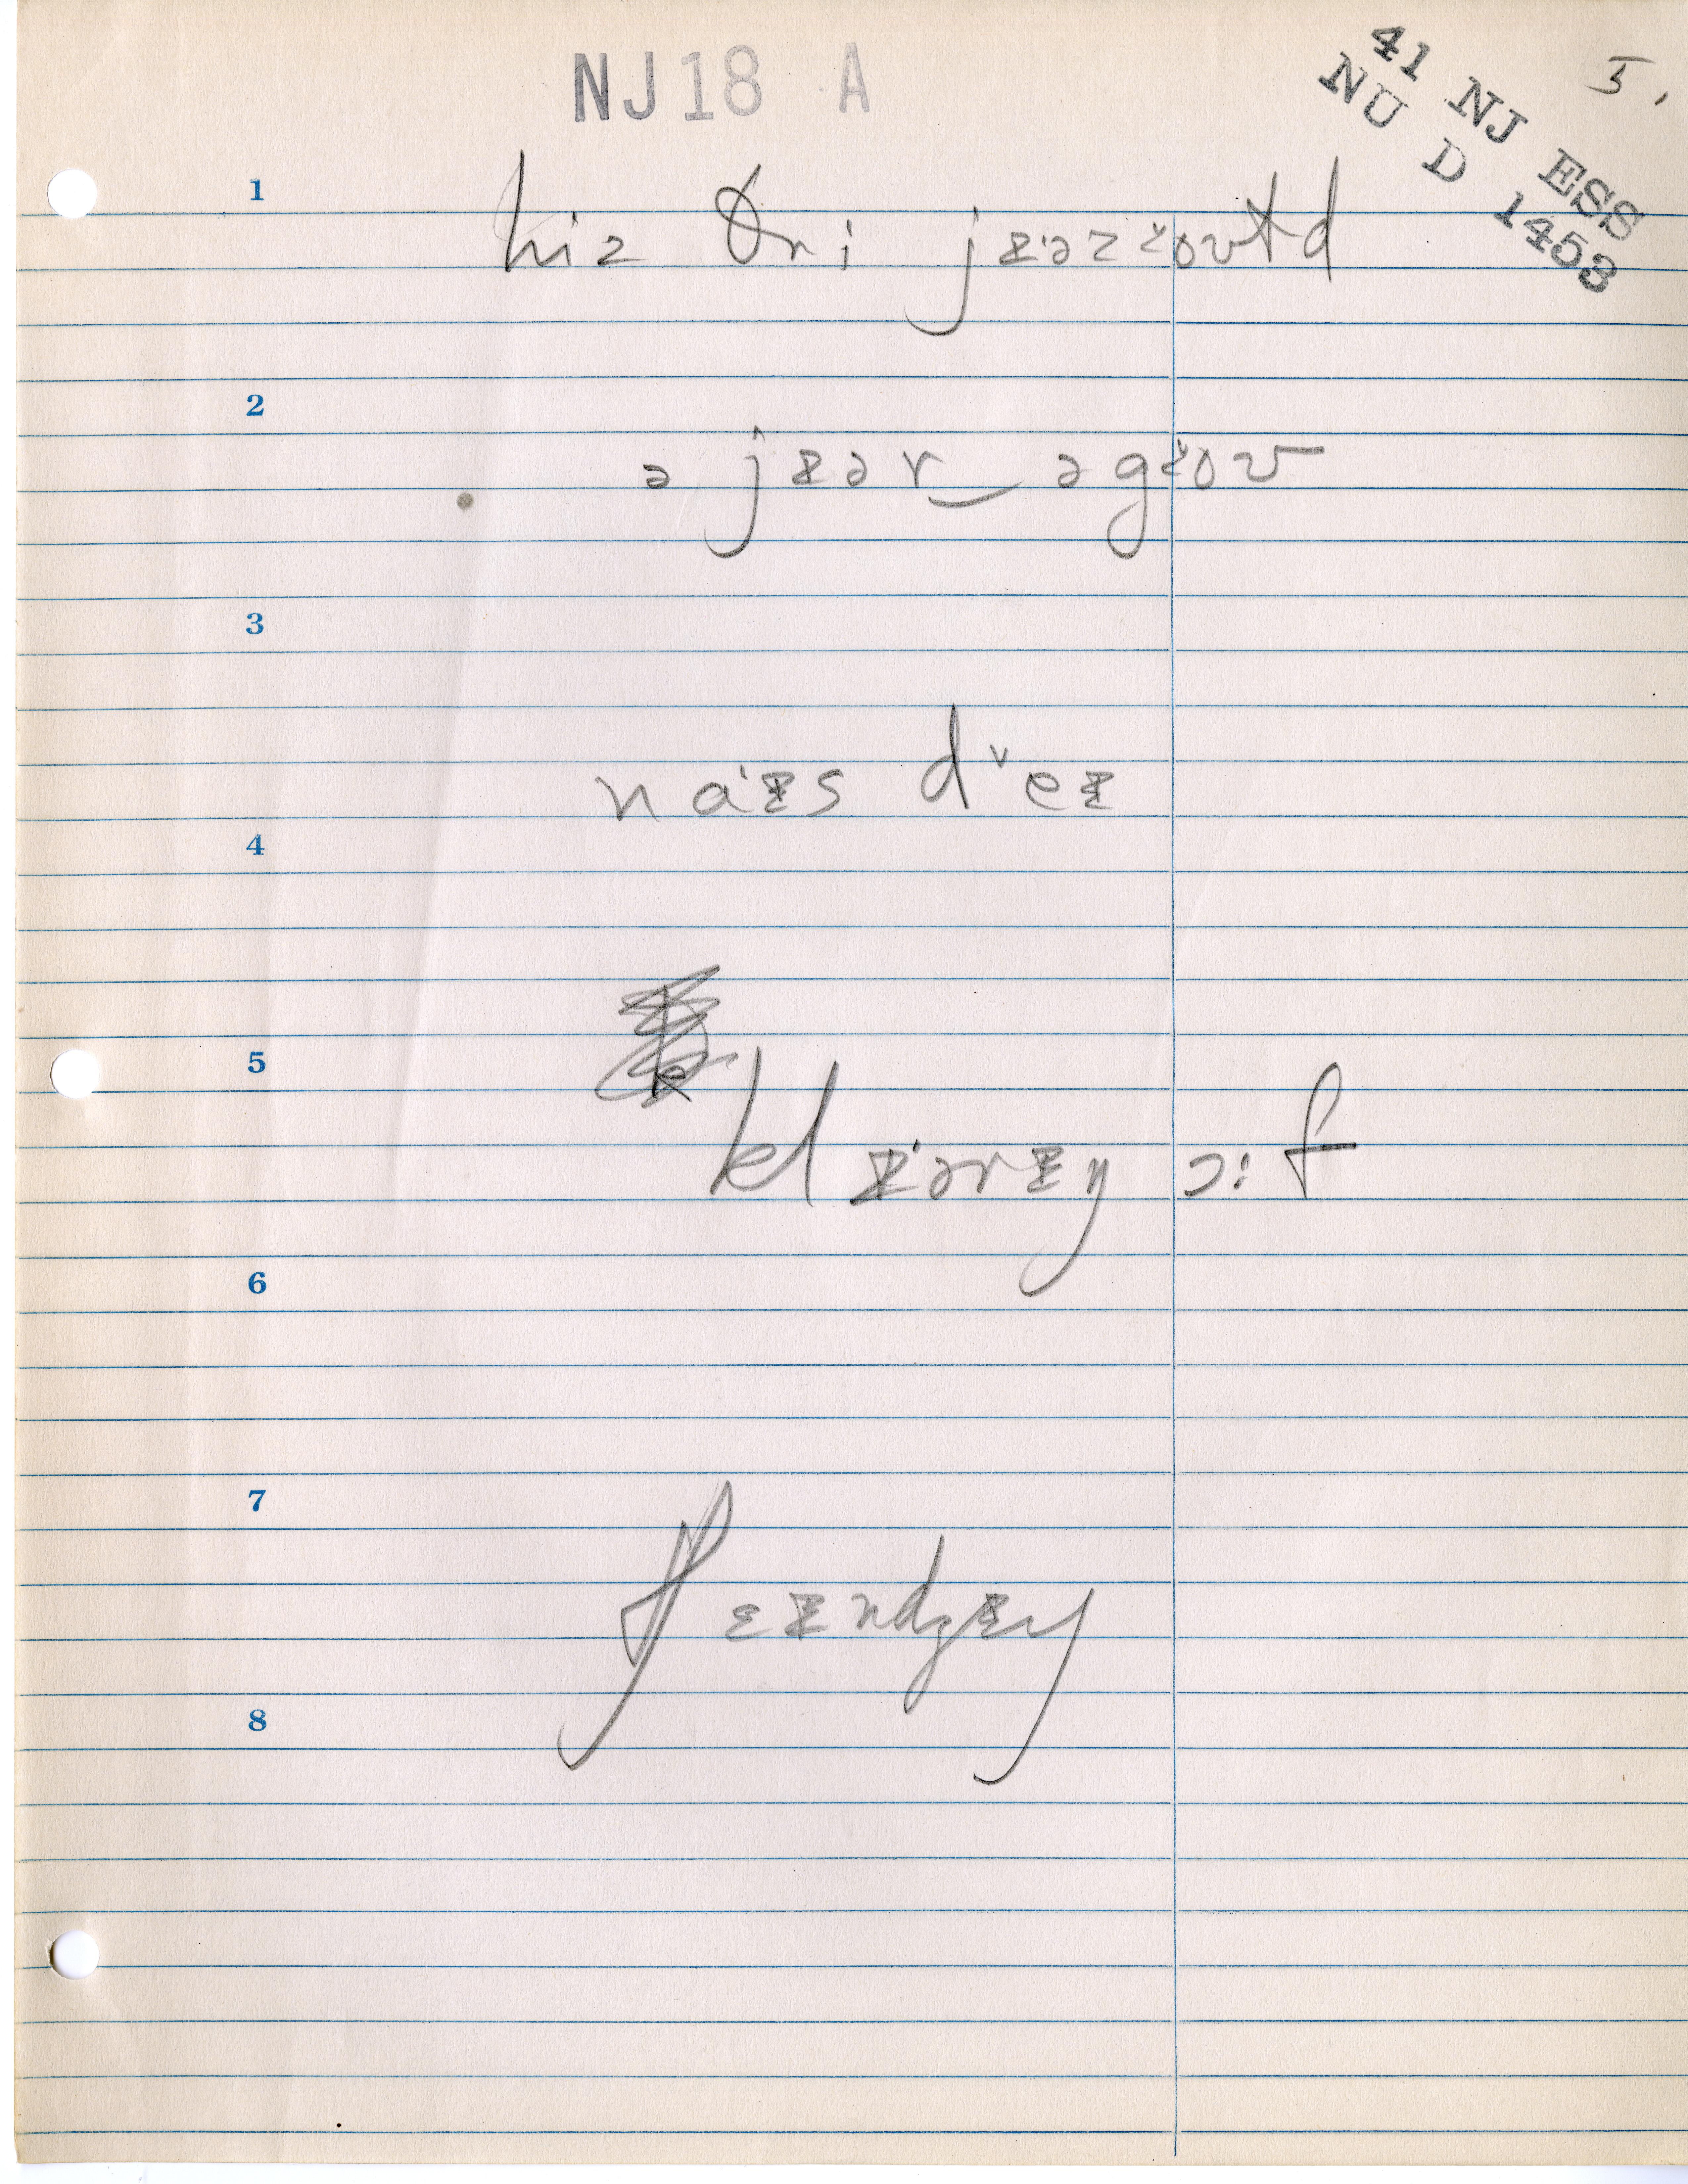 NJ18 A
41 NJ ESS
NU D 1453
5.
1
hiz θri jɪ̵əz ovɫd
2
ə jɪ̵ər‿əgov
3
naɪ̵s d eɪ̵
4
5
klɪ̵ərɪ̵ŋ ɔ:f
6
7
ʃɛɪ̵ndʒɪ̵ŋ
8